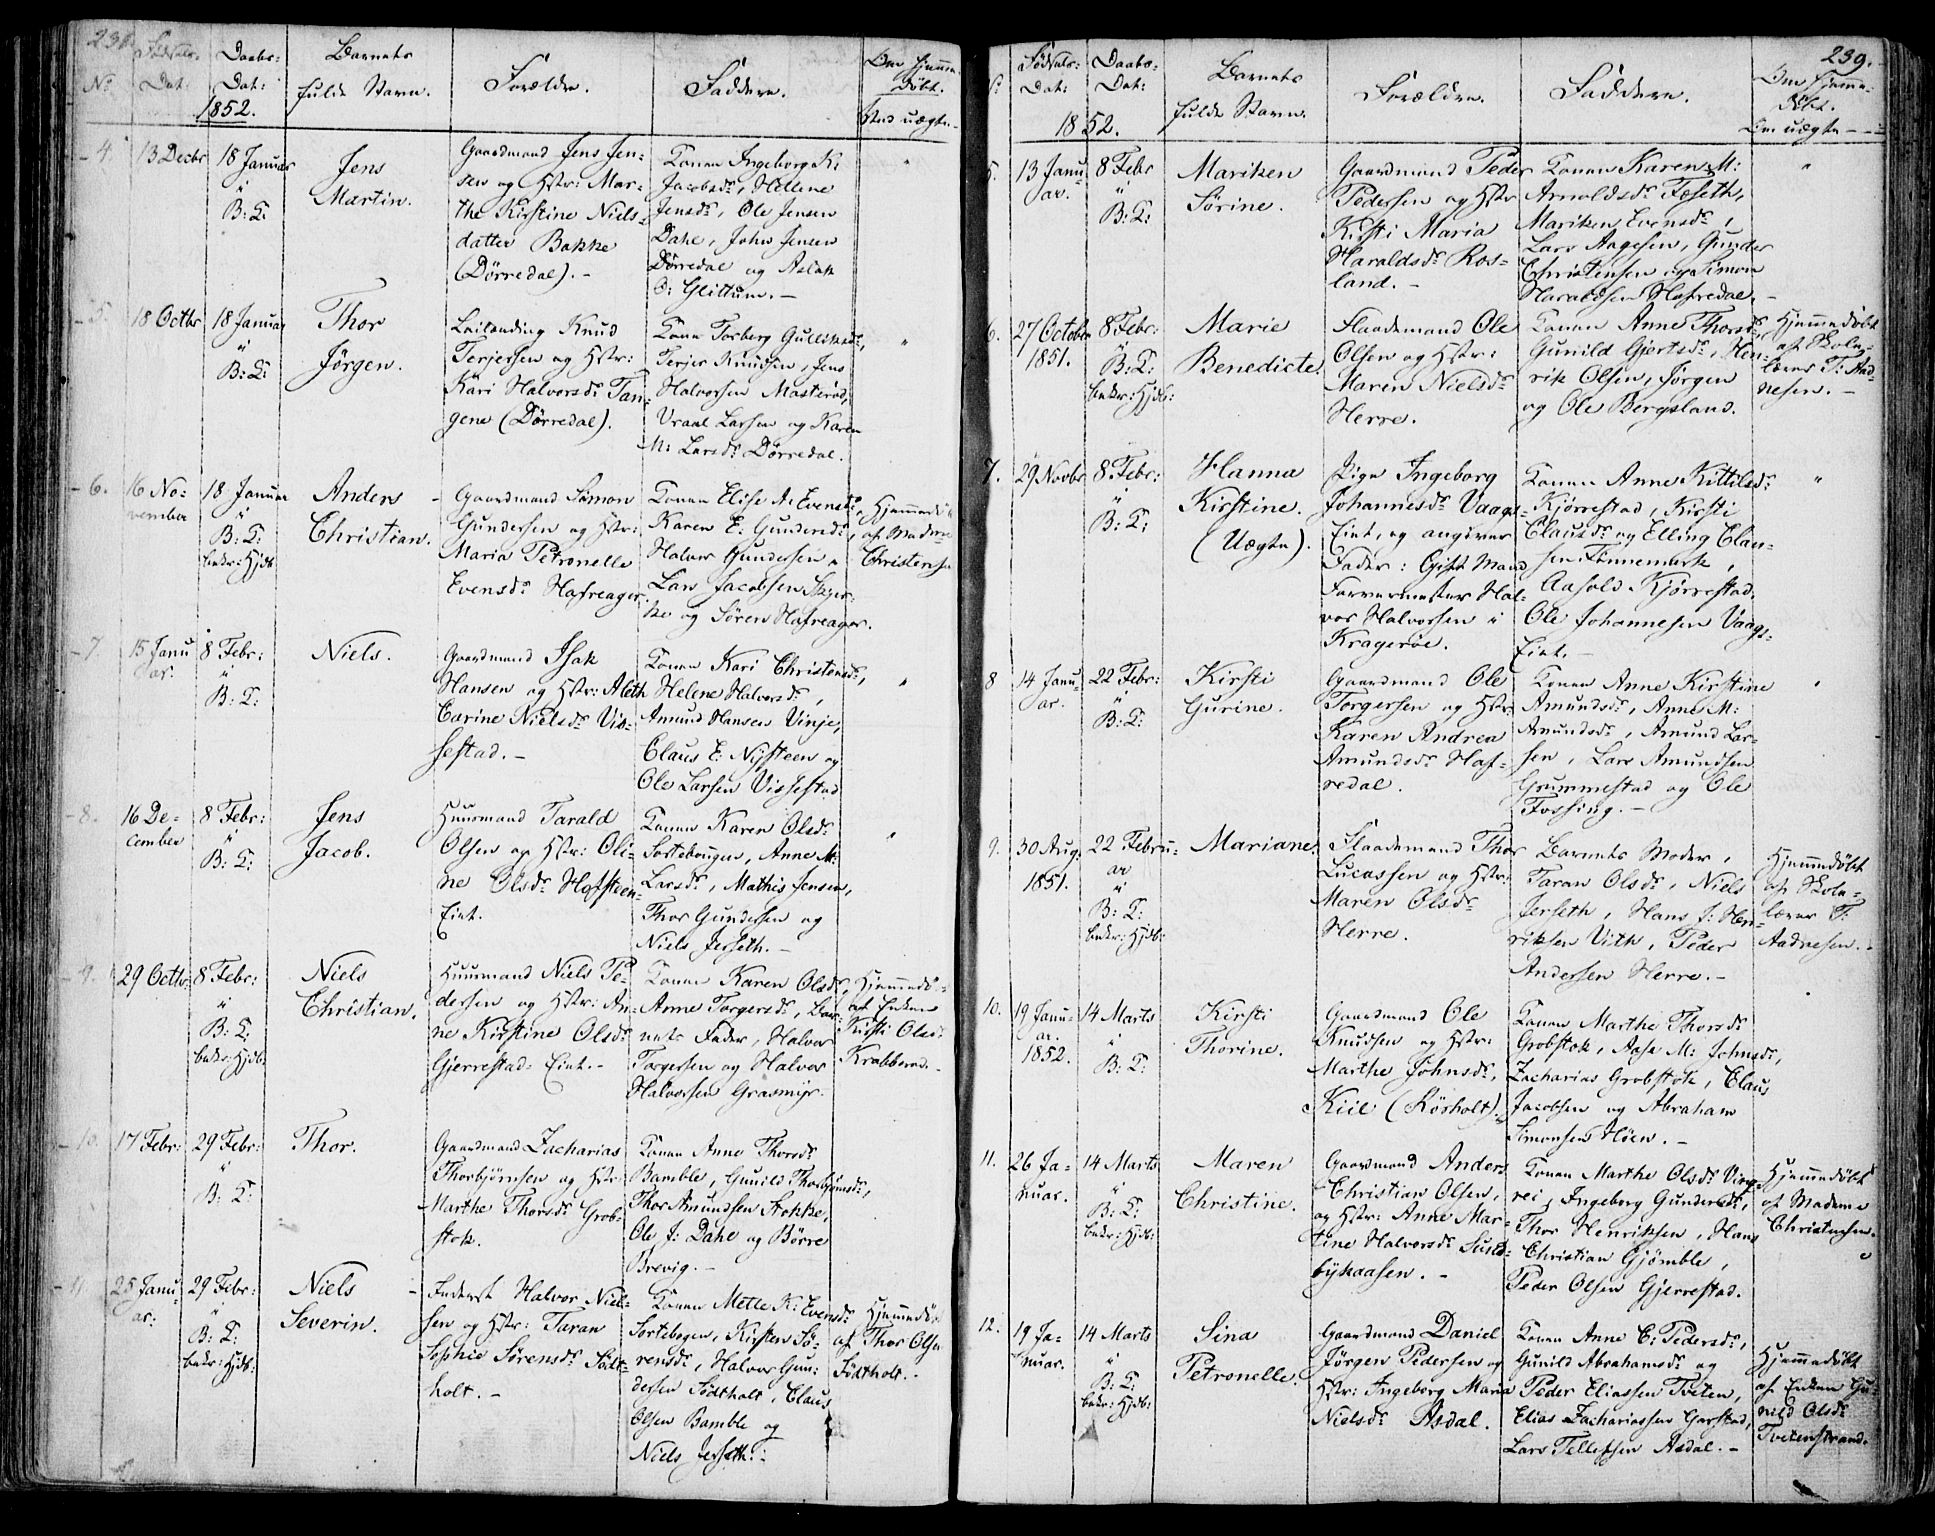 238.
No
Fødsels-
Dat:
Daabs-
Dat:
1852.
Barnets
fulde Navn.
Forældre.
Faddere.
Om hjemme-
døbt.
4.
13 Decbr
18 Januar
"
B: K:
Jens
Martin.
Gaardmand Jens Jen-
sen og Hstr: Mar-
the Kirstine Niels-
datter Bakke
(Dørredal). -
Konen Ingeborg K:
Jacobsdr, Hellene
Jensdr, Ole Jensen
Dahl, John Jensen
Dørredal og Aslak
O: Glittum. -
"
5.
18 Octbr
18 Januar
"
B: K:
Thor
Jørgen.
Leilænding Knud
Terjersen og Hstr:
Kari Halvorsdr Tan-
gene (Dørredal).
Kone Torberg Gulliksdr,
Terjer Knudsen, Jens
Halvorsen Masterød,
Vraal Larsen og Karen
M: Larsdr Dørredal.
"
6.
16 No-
vember
18 Januar
"
B: K:
bekr: Hjdb
Anders
Christian.
Gaardmand Simon
Gundersen og Hstr:
Maria Petronelle
Evensdr Hafreager.
Konen Elise A: Evensdr,
Karen E. Gundersdr,
Halvor Gundersen,
Lars Jacobsen Skjer-
ke og Søren Hafreager.
Hjemmedøbt
af Madme
Christensen
7.
15 Janu
ar.
8 Febr:
"
B: K:
Niels.
Gaardmand Isak
Hansen og Hstr: Aleth
Carine Nielsdr Vis-
sestad. -
Konen Kari Christensdr,
Helene Halvorsdr,
Amund Hansen Vinje,
Claus E: Nysteen og
Ole Larsen Vissestad
"
8.
16 De-
cember
8 Febr:
"
B: K:
Jens
Jacob.
Huusmand Tarald
Olsen og Hstr: Oli-
ne Olsdr Hafsteen-
Eiet.
Konen Karen Olsdr
Sortebougen, Anne M:
Larsdr, Mathis Jensen,
Thor Gundersen og
Niels Jerseth. -
"
9.
29 Octbr:
8 Febr:
"
B: K:
bekr: Hjdb:
Niels
Christian.
Huusmand Niels Pe-
dersen og Hstr: An-
ne Kirstine Olsdr
Gjerrestad-Eiet. -
Konen Karen Olsdr,
Anne Torgersdr, Bar-
nets Fader, Halvor
Torgersen og Halvor
Halvorsen Grasmyr.
Hjemmedø-
af Enken
Kirsti Olsdr
Krabberød.
10.
17 Febr:
29 Febr:
"
B: K:
Thor.
Gaardmand Zacharias
Thorbjørnsen og Hstr:
Marthe Thorsdr Grob-
stok.
Konen Anne Thorsdr
Bamble, Gunild Thorbjørnsdr,
Thor Amundsen Stokke,
Ole J: Dahl og Børre
Brevig. -
11
25 Janu-
ar:
29 Febr:
"
B: K:
bekr: Hjdb:
Niels
Severin.
Inderst Halvor Niel-
sen og Hstr: Taran
Sophie Sørensdr Södt-
holt. -
Konen Mette K: Evensdr
Sortebogen, Kirsten Sö-
rensdr, Halvor Gun-
dersen Södtholt, Claus
Olsen Bamble og
Niels Jerseth. -
Hjemmedøb
af Thor Olsen
Södtholt.
239.
Fødsels-
Dat:
Daabs-
Dat:
1852.
Barnets
fulde Navn.
Forældre.
Faddere.
Om hjemme-
døbt.
Om uægte -
5.
13 Janu-
ar.
8 Febr
"
B: K:
Mariken
Sörine.
Gaardmand Peder
Pedersen og Hstr
Kirsti Maria
Haraldsdr Ros-
land. -
Konen Karen M:
Arnoldsdr Foseth,
Mariken Evensdr,
Lars Aagesen, Gunder
Christensen og Simon
Haraldsen Hafredal. -
"
6.
27 October
1851.
8 Febr:
"
B: K:
bekr: Hjdb:
Marie
Benedicte.
Flaademand Ole
Olsen og Hstr:
Maren Nielsdr
Herre.
Konen Anne Thorsdr,
Gunild Gjertsdr, Hen-
rik Olsen, Jørgen
og Ole Bergsland.
Hjemmedøbt
af Skole-
lærer T: Aad-
nesen. -
7.
29 Novbr
8 Febr:
"
B: K:
Hanna
Kirstine.
(Uægte).
Pige Ingeborg
Johannesdr Vaags-
Eiet, og angiven
Fader: Gift Mand
Farvermester Hal-
vor Halvorsen i
Kragerøe.
Konen Anne Kittilsdr
Kjørrestad, Kirsti
Clausdr og Elling Clau-
sen Fønnemark,
Aasold Kjørrestad,
Ole Johannesen Vaags-
Eiet. -
"
8
14 Janu-
ar.
22 Febr:
"
B: K:
Kirsti
Gurine.
Gaardmand Ole
Torgersen og Hstr
Karen Andrea
Amundsdr Haf-
redal.
Konen Anne Kirstine
Amundsdr, Anne M:
Amundsdr, Amund Lar-
sen, Lars Amundsen
Grummestad og Ole
Fossing. -
"
9.
30 Aug.
1851.
22 Febru-
ar
"
B: K:
bekr: Hjdb:
Mariane.
Flaademand Thor
Lucassen og Hstr:
Maren Olsdr
Herre.
Barnets Moder,
Taran Olsdr, Niels
Jerseth, Hans J: Hen-
riksen Vith, Peder
Andersen Herre. -
Hjemmedøbt
af Skole-
lærer T:
Aadnesen. -
10.
19 Janu-
ar.
1852.
14 Marts
"
B: K:
Kirsti
Thorine.
Gaardmand Ole
Knudsen og Hstr:
Marthe Johnsdr,
Kiil (Rösholt).
Konen Marthe Thorsdr
Grobstok, Aase M: Johnsdr,
Zacharias Grobstok, Claus
Jacobsen og Abraham
Simonsen Höen. -
11.
26 Ja-
nuar.
14 Marts
"
B: K:
bekr: Hjdb:
Maren
Christine.
Gaardmand Anders
Christian Olsen,
og Hstr: Anne Mar-
tine Halvorsdr Sund-
bykaasen. -
Konen Marthe Olsdr Virg-
rei, Ingeborg Gundersdr,
Thor Henriksen, Hans
Christian Gjömble,
Peder Olsen Gjerrestad.
Hjemmedøbt
af Madame
Christensen.
12.
19 Ja-
nuar.
14 Marts
"
B: K:
bekr: Hjdb:
Sina
Petronelle.
Gaardmand Daniel
Jörgen Pedersen og
Hstr: Ingeborg Maria
Nielsdr Asdal.
Konen Anne C: Pedersdr,
Gunild Abrahamsdr og
Peder Eliassen Tveten,
Elias Zachariassen Garstad,
Lars Tellefsen Asdal. -
Hjemmedøbt
af Enken Gu-
nild Olsdr
Tvetenstrand.